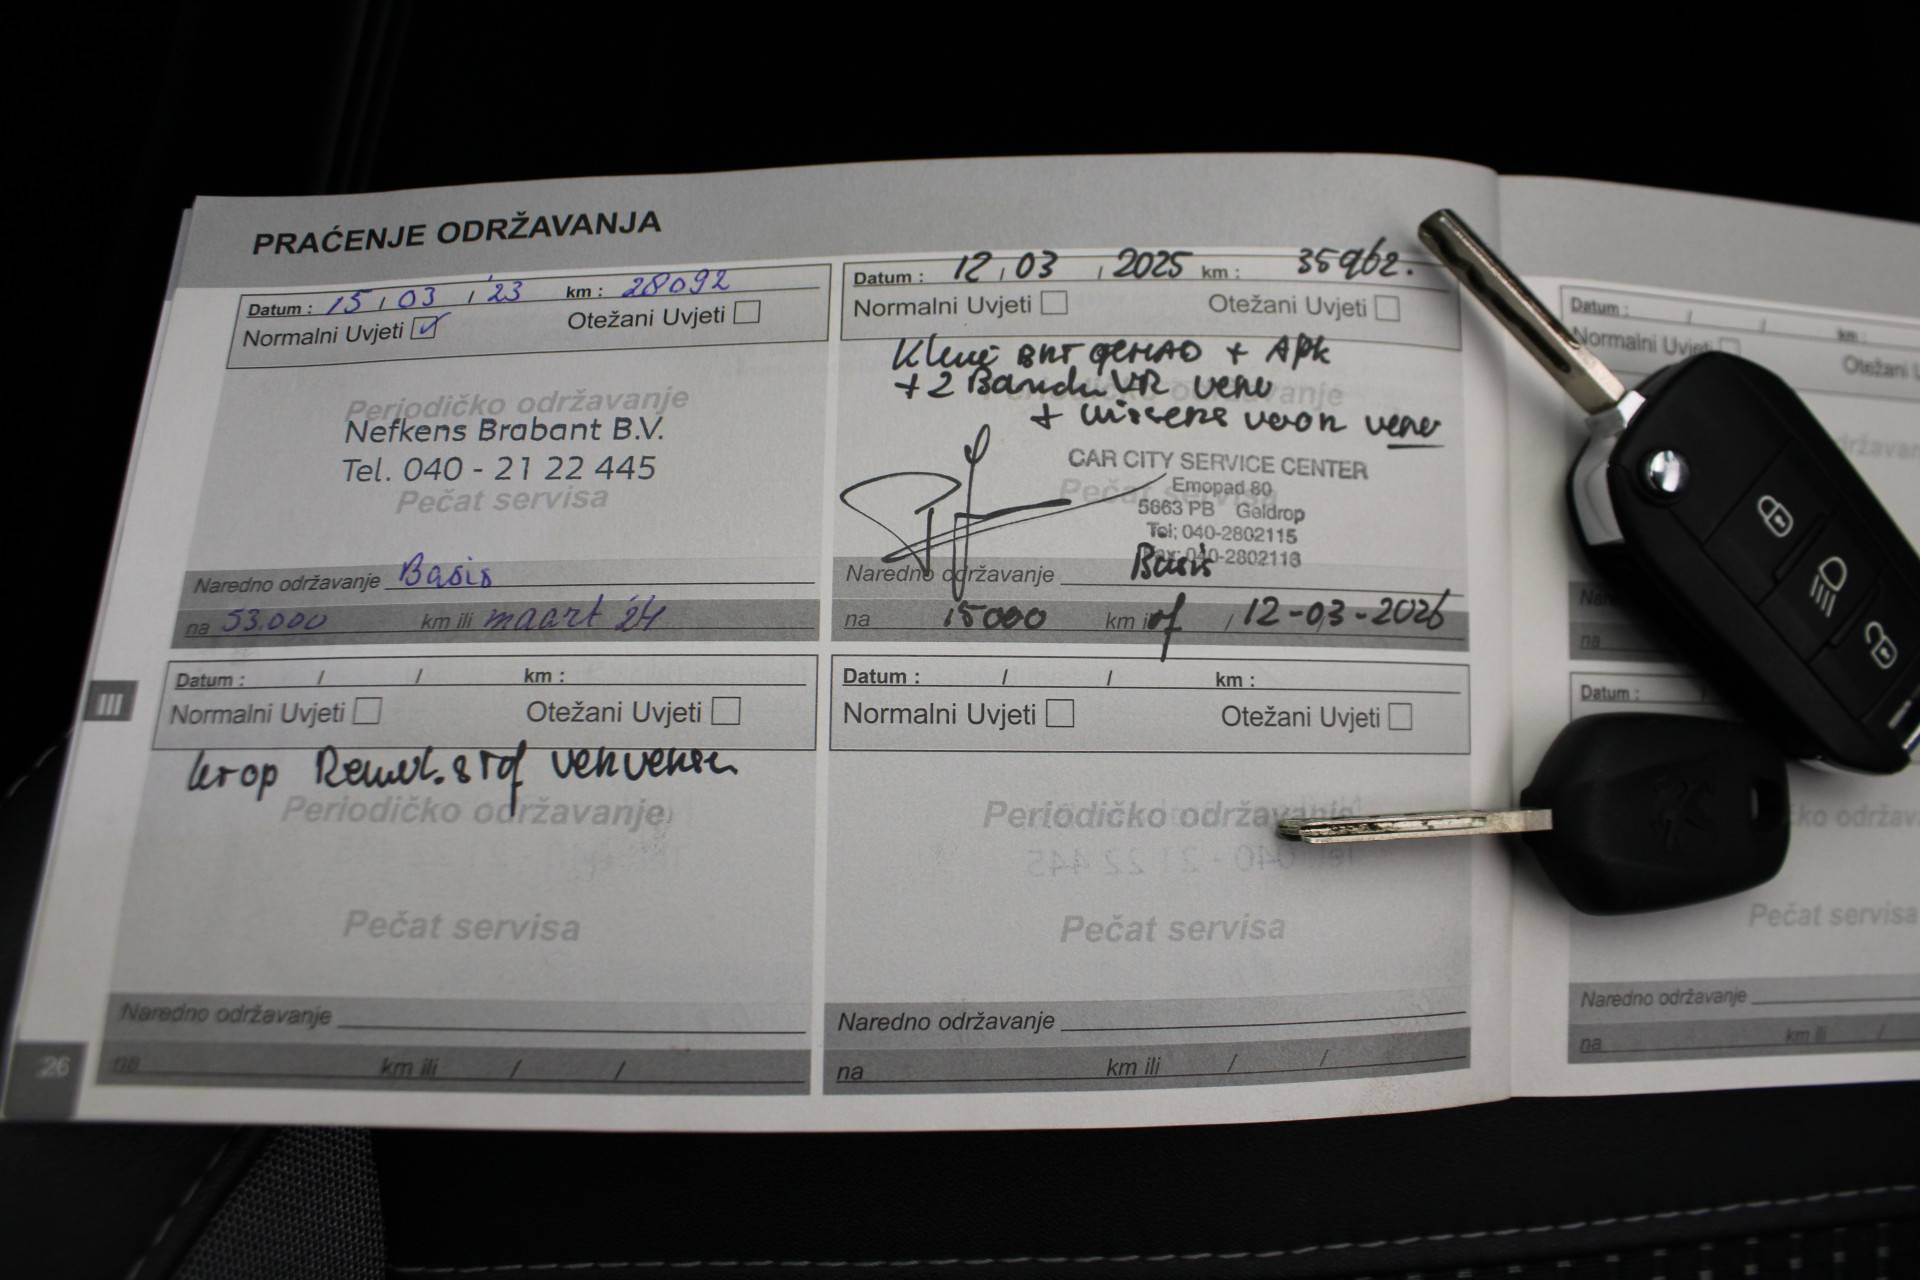 PRAĆENJE ODRŽAVANJA
Datum : 15 / 03 / '23 km : 28092
Normalni Uvjeti Otežani Uvjeti
Periodičko održavanje
Nefkens Brabant B.V.
Tel. 040 - 21 22 445
Pečat servisa
Naredno održavanje Basis
na 53.000 km ili maart '24
Datum : 12 / 03 / 2025 km : 35962.
Normalni Uvjeti Otežani Uvjeti
+ APK
+ 2 Banden
+
CAR CITY SERVICE CENTER
Emopad 80
5663 PB Geldrop
Tel: 040-2802115
Fax: 040-2802116
Naredno održavanje Basis
na 15000 km of / 12-03-2026
Datum : / / km :
Normalni Uvjeti Otežani Uvjeti
Remvl.stof
Periodičko održavanje
Pečat servisa
Naredno održavanje
na km ili / /
Datum : / / km :
Normalni Uvjeti Otežani Uvjeti
Periodičko održavanje
Pečat servisa
Naredno održavanje
na km ili / /
III
26
Datum : / / km :
Normalni Uvjeti
na
Datum :
Pečat servisa
Naredno održavanje
na km ili /